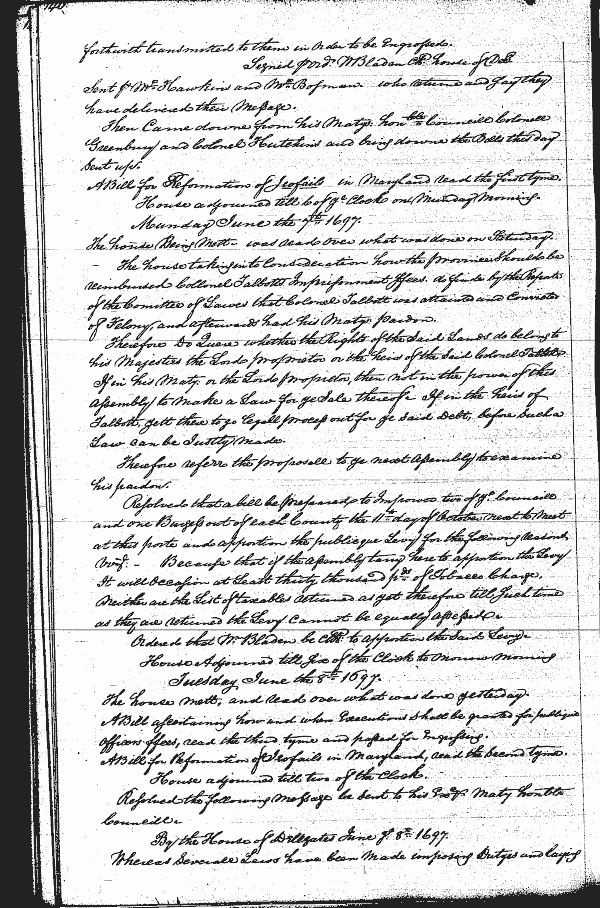 140.
forthwith transmitted to them in order to be Engrossed.
Signed p ord.r WBladen Clk house of Del
Sent p Mr. Hawkins and Mr. Bofman who returne and say they
have delivered their Message.
Then Came downe from his Matys. honble Councill Colonell
Greenbury and Colonel Hutchins and bring downe the Bills this day
Sent up.
A Bill for Reformation of Jeofails in Maryland read the first tyme.
House adjourned till 6 of ye Clock on Munday Morning.
Munday June the 7th 1697.
The house Being Mett was read over what was done on Saturday.
The house taking into Consideration how the province should be
reimbursed Collonel Talbotts Imprisonment ffees. do finde by the Report
of the Comittee of Lawes that Colonel Talbott was attainted and Convicted
of Felony, and afterwards had his Matys pardon.
Therefore Do Quære whether the Rights of the Said Lands do belong to
his Majesty the Lord proprietor or the heirs of the Said Colonel Talbott
If in his Maty. or the Lord propietor, then not in the power of this
Assembly to make a Law for ye Sale thereof. If in the heirs of
Talbott, yett there to go legall process out for ye Said Debt, before Such a
Law can be Justly made.
Therefore referr the proposall to ye next Assembly to examine
his pardon.
Resolved that a bill be prepared to Impower two of ye Councill
and one Burgess out of each County the 11th day of October next to Meet
at the porte and apportion the publicque Levy for the following reasons,
viz.t - Because that if the Assembly tarry here to apportion the Levy
It will occasion at Least thirty thousand pds of Tobacco Charge.
Neither are the List of taxables returned as yet therefore till Such time
as they are returned the Levy cannot be equally assessed.
Ordered that Mr. Bladen be Clk to apportion the Said Levy.
House Adjourned till Six of the Clock to Morrow Morning
Tuesday June the 8th 1697.
The house mett, and read over what was done yesterday.
A Bill ascertaining how and when Executions shall be granted for publique
officers ffees, read the third tyme and passed for Engrossing.
A Bill for Reformation of Jeofails in Maryland, read the Second tyme.
House adjourned till two of the Clock.
Resolved the following Message be Sent to his Maty honble
Councill.
By the House of Dellegates June ye 8th 1697.
Whereas Severall Laws have been Made imposing Dutys and laying